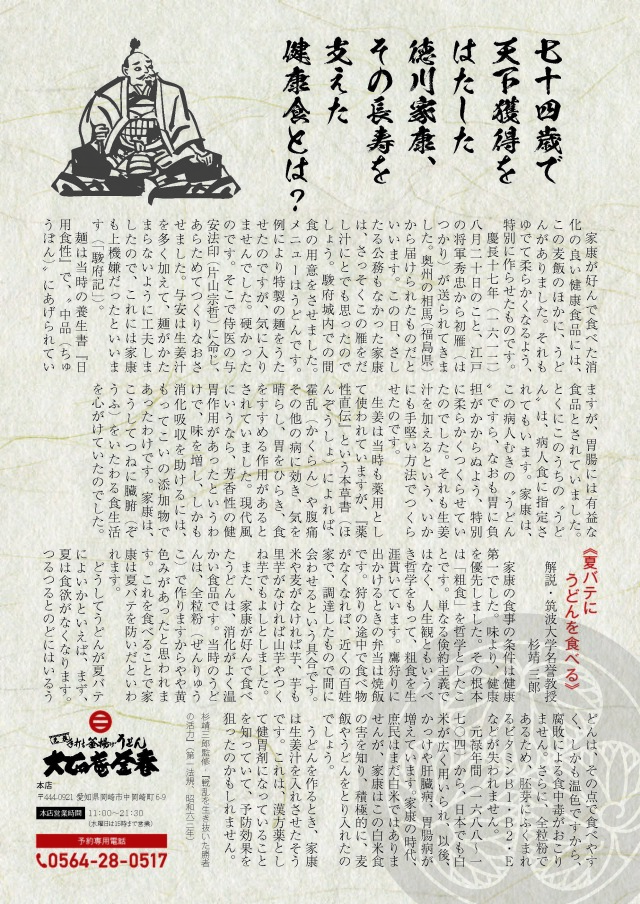 七十四歳で
天下獲得を
はたした
徳川家康、
その長寿を
支えた
健康食とは?
家康が好んで食べた消
化の良い健康食品には、
この麦飯のほかに、うど
んがありました。それも
ゆでて柔らかくなるよう、
特別に作らせたものです。
慶長十七年(一六一二)
八月二十日のこと、江戸
の将軍秀忠から初雁(は
つかり)が送られてきま
した。奥州の相馬(福島県)
から届けられたものだと
いいます。この日、さし
たる公務もなかった家康
は、さっそくこの雁をだ
し汁にとでも思ったので
しょう。駿府城内での間
食の用意をさせました。
メニューはうどんです。
例により特製の麺をうた
せたのですが、気に入り
ませんでした。硬かった
のです。そこで侍医の与
安法印(片山宗哲)に命じ、
あらためてつくりなおさ
せました。与安は生姜汁
を多く加えて、麺がかた
まらないように工夫しま
したので、これには家康
も上機嫌だったといいま
す(「駿府記」)。
麺は当時の養生書『日
用食性』で、中品(ちゅ
うぼん)〟にあげられてい
ますが、胃腸には有益な
食品とされていました。
とくにこのうちの〝うど
ん〟は、病人食に指定さ
れてもいます。家康は、
この病人むきの〝うどん
〟ですら、なおも胃に負
担がかからぬよう、特別
に柔らかくつくらせてい
たのでした。それも生姜
汁を加えるという、いか
にも手堅い方法でつくら
せたのです。
生姜は当時も薬用とし
て使われていますが、『薬
性直伝』という本草書(ほ
んぞうしょ)によれば、
霍乱(かくらん)や腹痛
その他の病に効き、気を
晴らし、胃をひらき、食
をすすめる作用があると
されていました。現代風
にいうなら、芳香性の健
胃作用があったというわ
けで、味を増し、しかも
消化吸収を助けるには、
もってこいの添加物で
あったわけです。家康は、
こうしてつねに臓腑(ぞ
うふ)をいたわる食生活
を心がけていたのでした。
《夏バテに
うどんを食べる》
解説・筑波大学名誉教授
杉靖三郎
家康の食事の条件は健康
第一でした。味より、健康
を優先しました。その根本
は「粗食」を哲学としたこ
とです。単なる倹約主義で
はなく、人生観ともいうべ
き哲学をもって、粗食を生
涯貫いています。鷹狩りに
出かけるときの弁当は焼飯
です。狩りの途中で食べ物
がなくなれば、近くの百姓
家で、調達したもので間に
会わせるという具合です。
米や麦がなければ芋、芋も
里芋がなければ山芋やつく
ね芋でもよしとしました。
また、家康が好んで食べ
たうどんは、消化がよく温
かい食品です。当時のうど
んは、全粒粉(ぜんりゅう
こ)で作りますからやや黄
色みがあったと思われま
す。これを食べることで家
康は夏バテを防いだといわ
れます。
どうしてうどんが夏バテ
によいかといえば、まず、
夏は食欲がなくなります。
つるつるとのどにはいるう
どんは、その点で食べやす
く、しかも温色ですから、
腐敗による食中毒がおこり
ません。さらに、全粒粉で
あるため、胚芽にふくまれ
るビタミンB1・B2・E
などが失われません。
元禄年間(一六八八~一
七〇四)から、日本でも白
米が広く用いられ、以後、
かっけや肝臓病、胃腸病が
増えています。家康の時代、
庶民はまだ白米ではありま
せんが、家康はこの白米食
の害を知り、積極的に、麦
飯やうどんをとり入れたの
でしょう。
うどんを作るとき、家康
は生姜汁を入れさせたそう
です。これは、漢方薬とし
て健胃剤になっていること
を知っていて、予防効果を
狙ったのかもしれません。
杉靖三郎監修 「戦乱を生き抜いた勝者
の活力」(第一法規、昭和六三年)
手打ち釜揚げうどん
大石庵全春
本店
〒444-0921 愛知県岡崎市中岡崎町6-9
本店営業時間 11:00〜21:30
(水曜日は15時まで営業)
予約専用電話
0564-28-0517